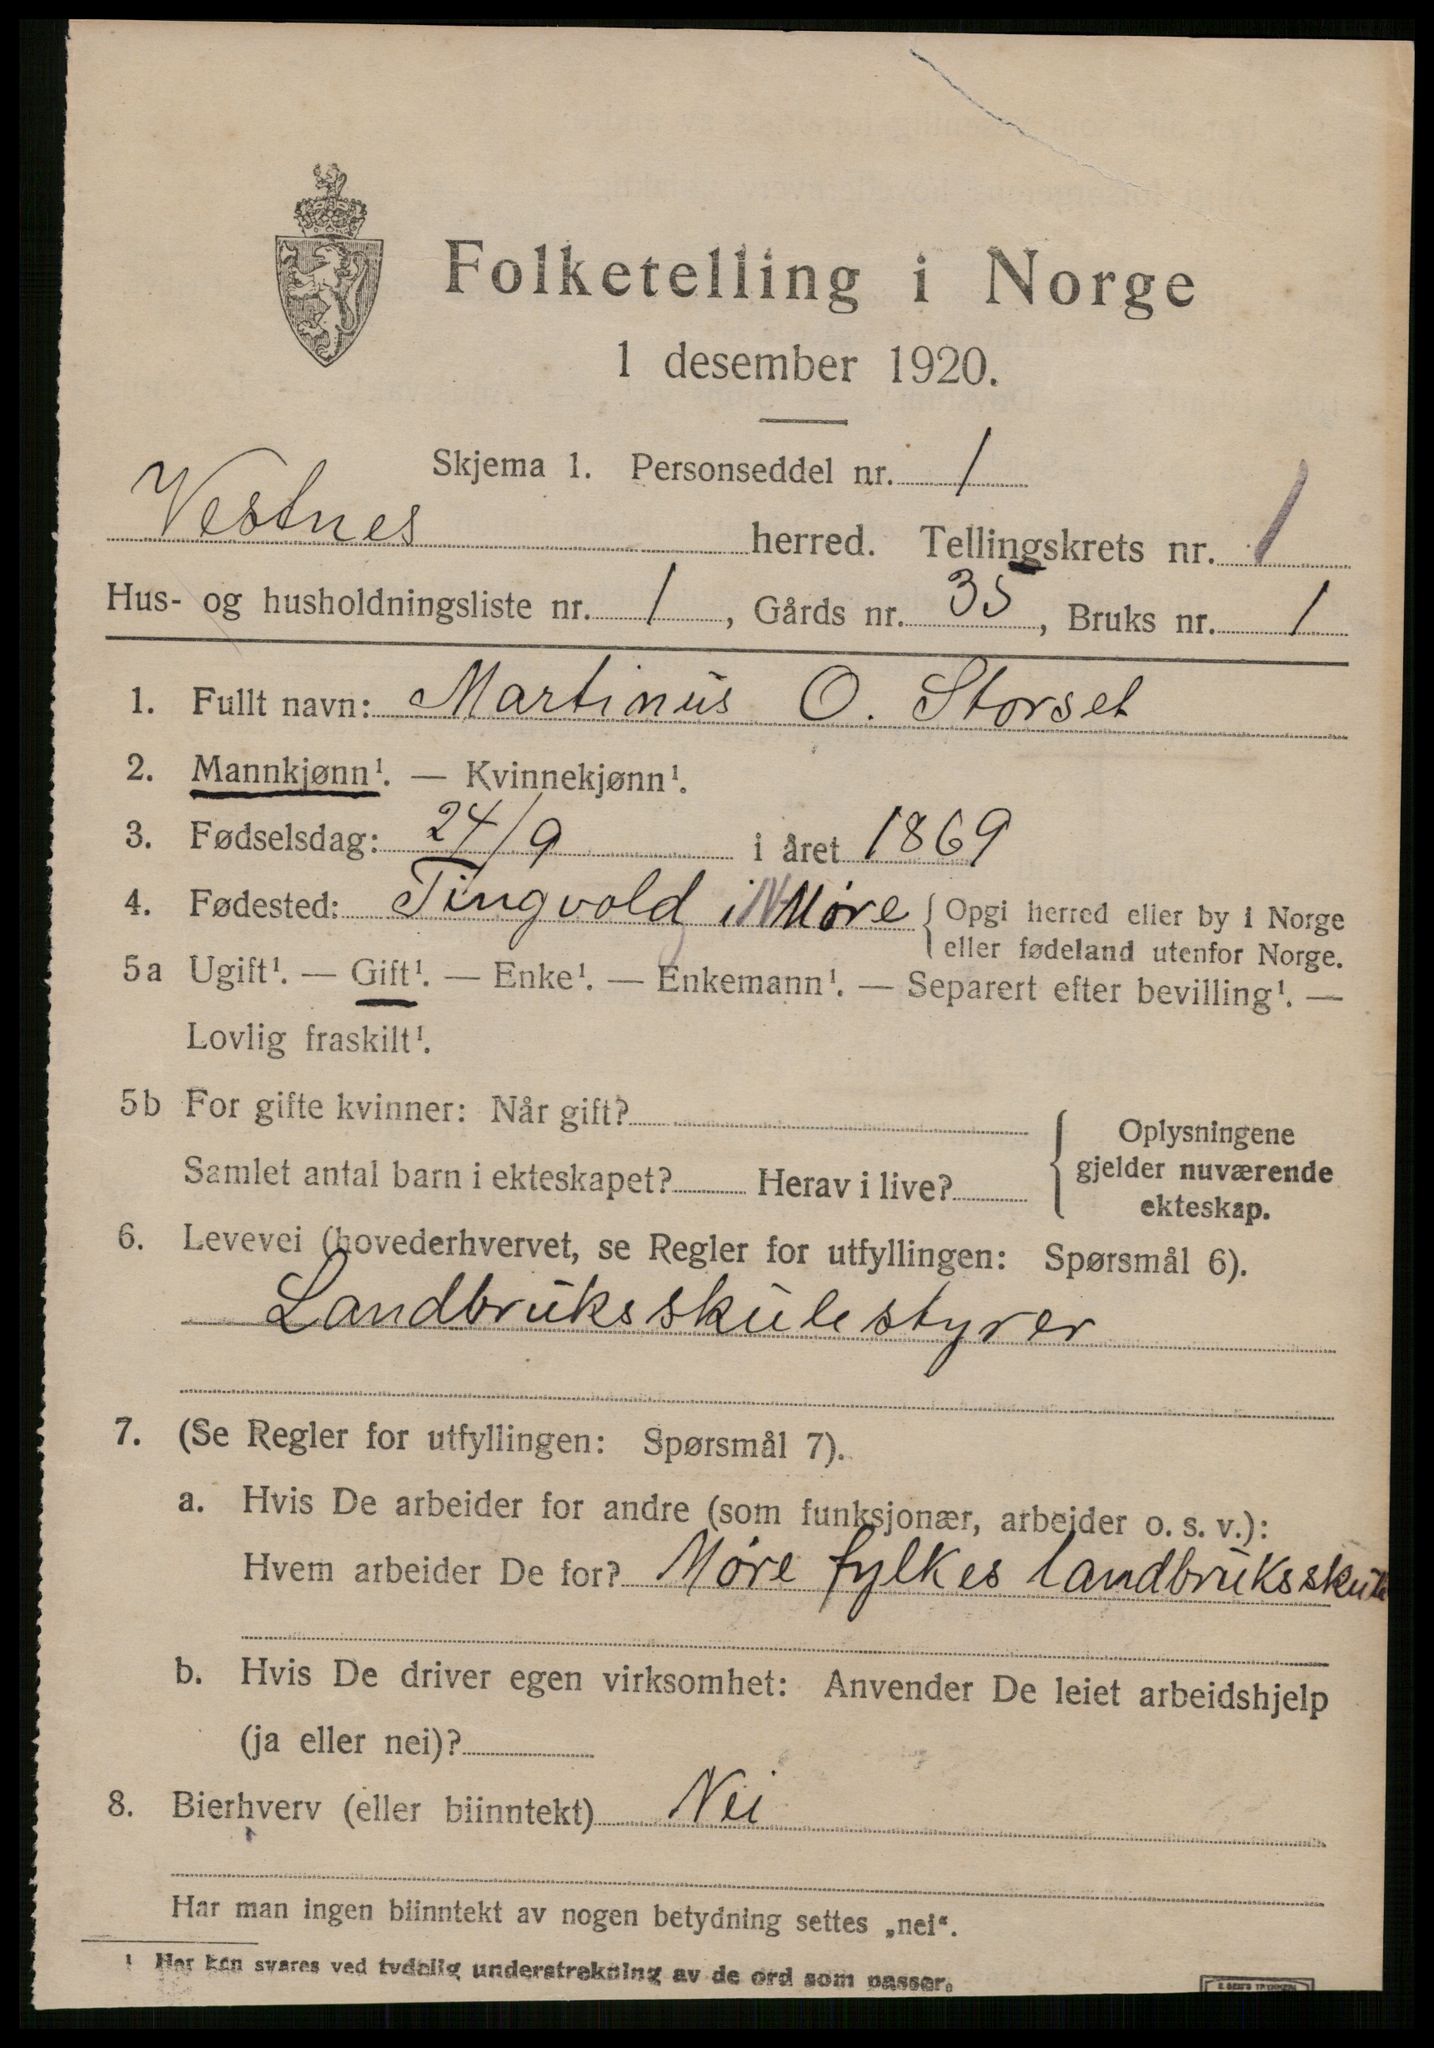 Folketelling i Norge
1 desember 1920.
Skjema 1. Personseddel nr. 1
Vestnes herred. Tellingskrets nr. 1
Hus- og husholdningsliste nr. 1, Gårds nr. 35, Bruks nr. 1
1. Fullt navn: Martinus O. Storset
2. Mannkjønn¹. — Kvinnekjønn¹.
3. Fødselsdag: 24/9 i året 1869
4. Fødested: Tingvold i N Møre { Opgi herred eller by i Norge
eller fødeland utenfor Norge.
5a Ugift¹. — Gift¹. — Enke¹. — Enkemann¹. — Separert efter bevilling¹. —
Lovlig fraskilt¹.
5b For gifte kvinner: Når gift?
Samlet antal barn i ekteskapet? Herav i live?
Oplysningene
gjelder nuværende
ekteskap.
6. Levevei (hovederhvervet, se Regler for utfyllingen: Spørsmål 6).
Landbruksskulestyrer
7. (Se Regler for utfyllingen: Spørsmål 7).
a. Hvis De arbeider for andre (som funksjonær, arbeider o. s. v.):
Hvem arbeider De for? Møre fylkes landbruksskule
b. Hvis De driver egen virksomhet: Anvender De leiet arbeidshjelp
(ja eller nei)?
8. Bierhverv (eller biinntekt) Nei
Har man ingen biinntekt av nogen betydning settes „nei“.
1 Her kan svares ved tydelig understrekning av de ord som passer.